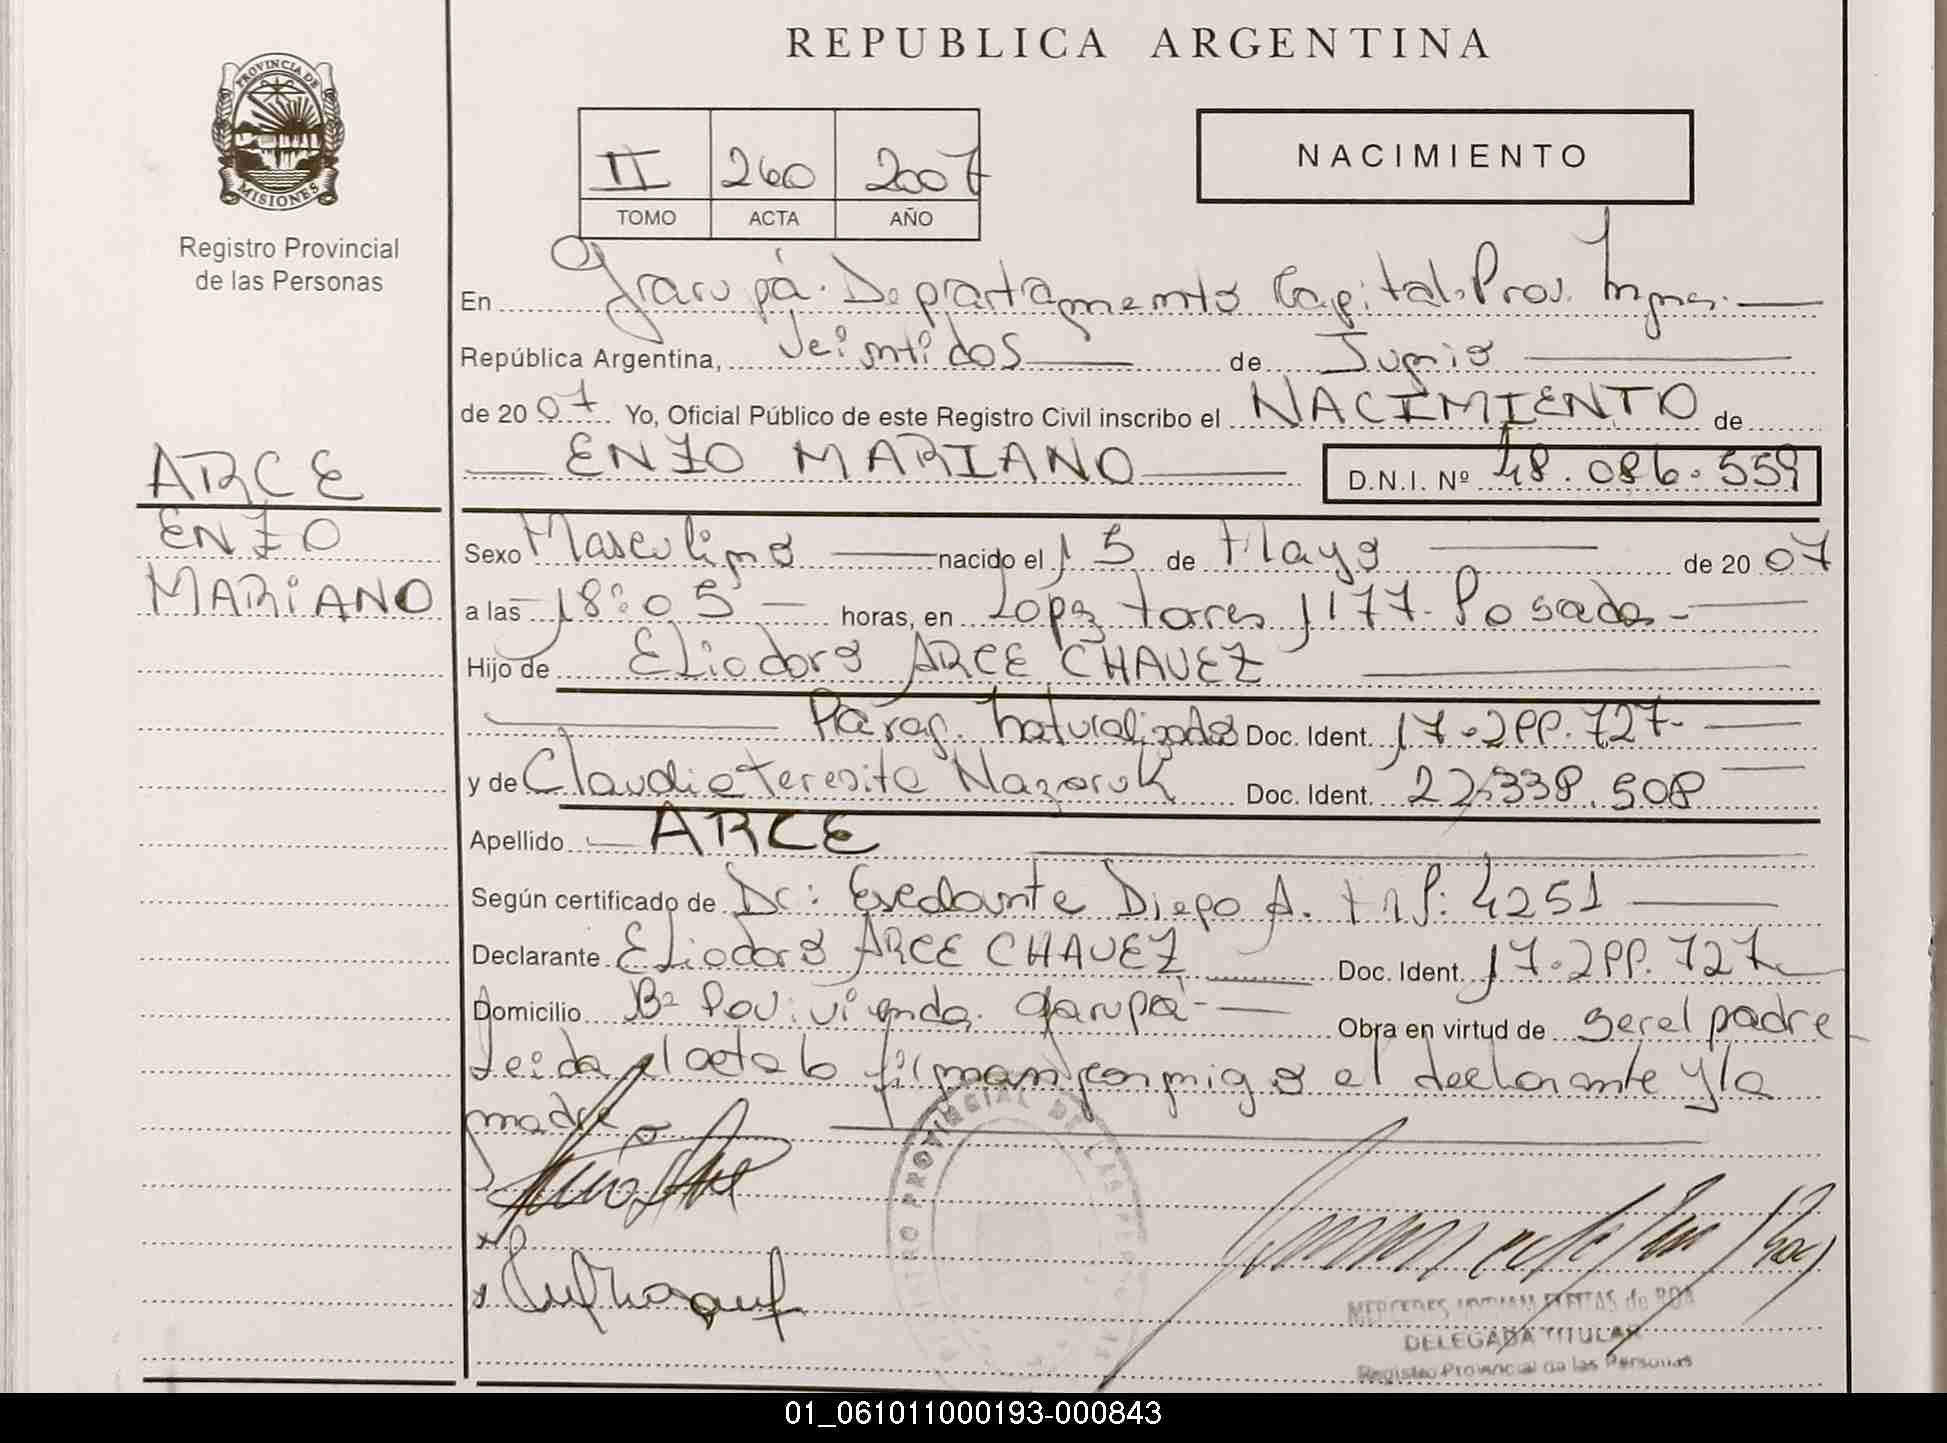 REPUBLICA ARGENTINA
PROVINCIA DE
MISIONES
Registro Provincial
de las Personas
II 260 2007
TOMO ACTA AÑO
NACIMIENTO
En Garupá. Departamento Capital. Prov. Mnes.
República Argentina, Veintidos de Junio
de 2007 Yo, Oficial Público de este Registro Civil inscribo el NACIMIENTO de
ENZO MARIANO D.N.I. Nº 48.086.559
ARCE
ENZO
MARIANO
Sexo Masculino nacido el 15 de Mayo de 2007
a las 18:05 horas, en Lopz torres 1177. Posadas
Hijo de Eliodoro ARCE CHAVEZ
Parag. Naturalizado Doc. Ident. 17.288.727
y de Claudia Teresita Nazaruk Doc. Ident. 22.338.508
Apellido ARCE
Según certificado de Dr: Diego A. M P: 4251
Declarante Eliodoro ARCE CHAVEZ Doc. Ident. 17.288.727
Domicilio Bº vivienda. Garupá Obra en virtud de ser el padre
Leida el acta lo firman conmigo el declarante y la
madre
REGISTRO PROVINCIAL DE LAS PERSONAS
MERCEDES MYRIAM FLEITAS de ROA
DELEGADA TITULAR
Registro Provincial de las Personas
01_061011000193-000843